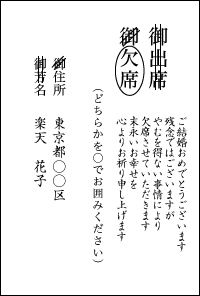 御出席
御欠席
(どちらかを〇でお囲みください)
ご結婚おめでとうございます
残念ではございますが
やむを得ない事情により
欠席させていただきます
末永いお幸せを
心よりお祈り申し上げます
御住所　東京都〇〇区
御芳名　楽天　花子